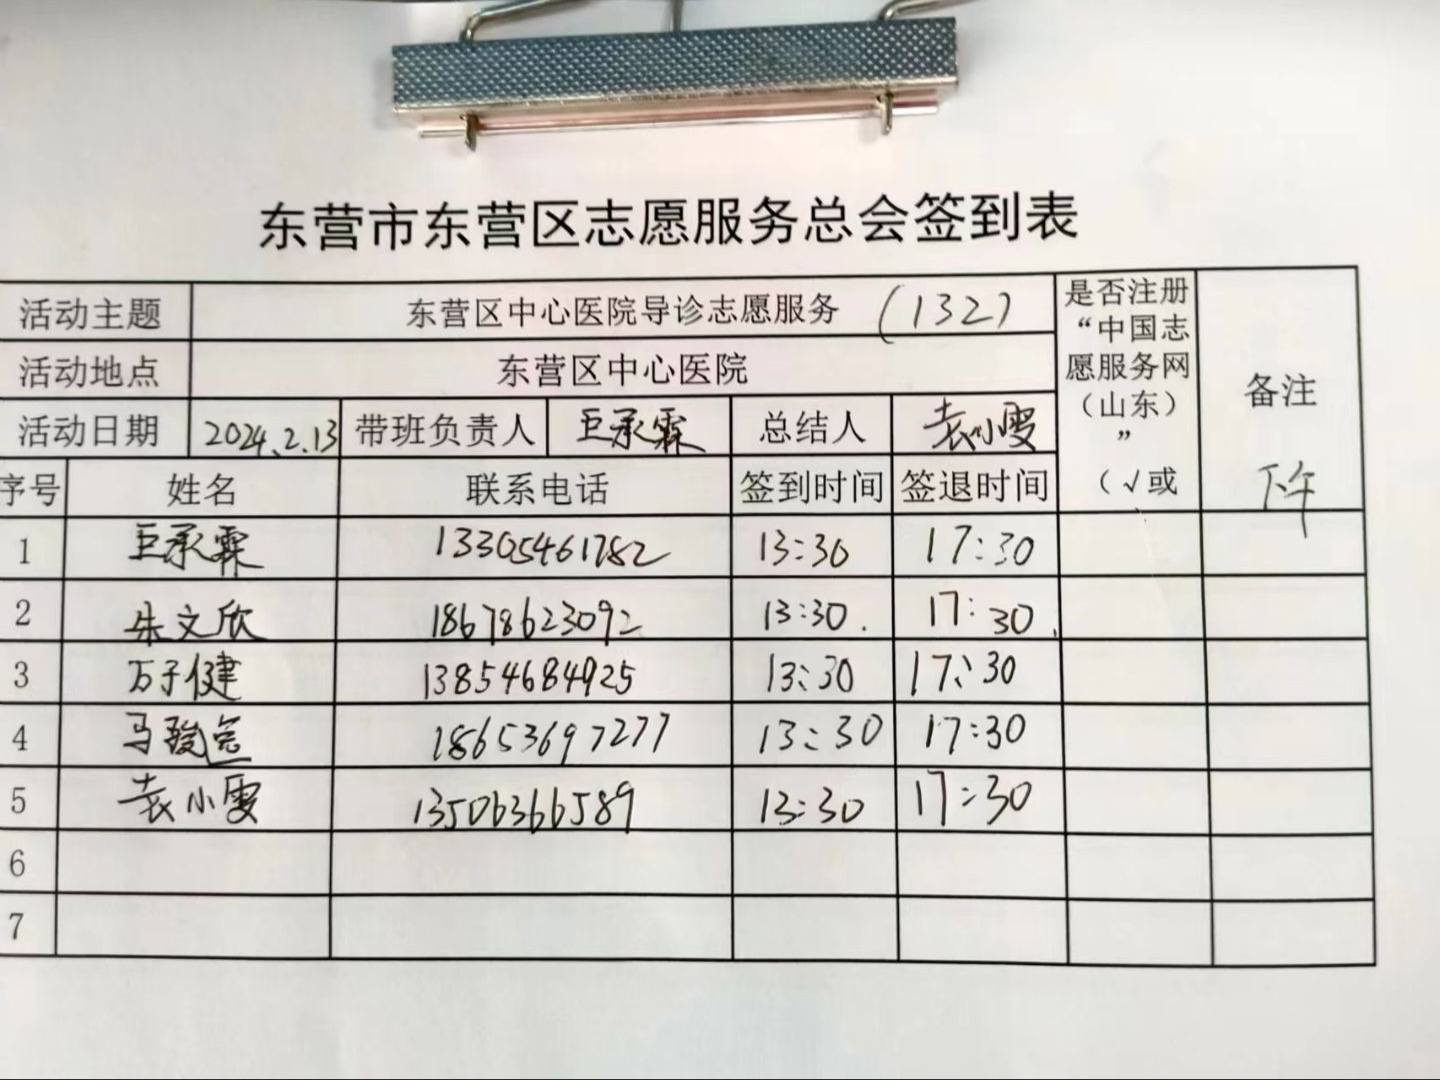 东营市东营区志愿服务总会签到表
活动主题 东营区中心医院导诊志愿服务 (132)
活动地点 东营区中心医院
活动日期 2024.2.13 带班负责人 巨承霖 总结人 袁小雯
是否注册
“中国志
愿服务网
（山东）
”
（√或
备注
下午
序号 姓名 联系电话 签到时间 签退时间
1 巨承霖 13305461782 13:30 17:30
2 朱文欣 18678623092 13:30. 17:30.
3 万子健 13854684925 13:30 17:30
4 马骏 18653697277 13:30 17:30
5 袁小雯 13506366589 13:30 17:30
6
7